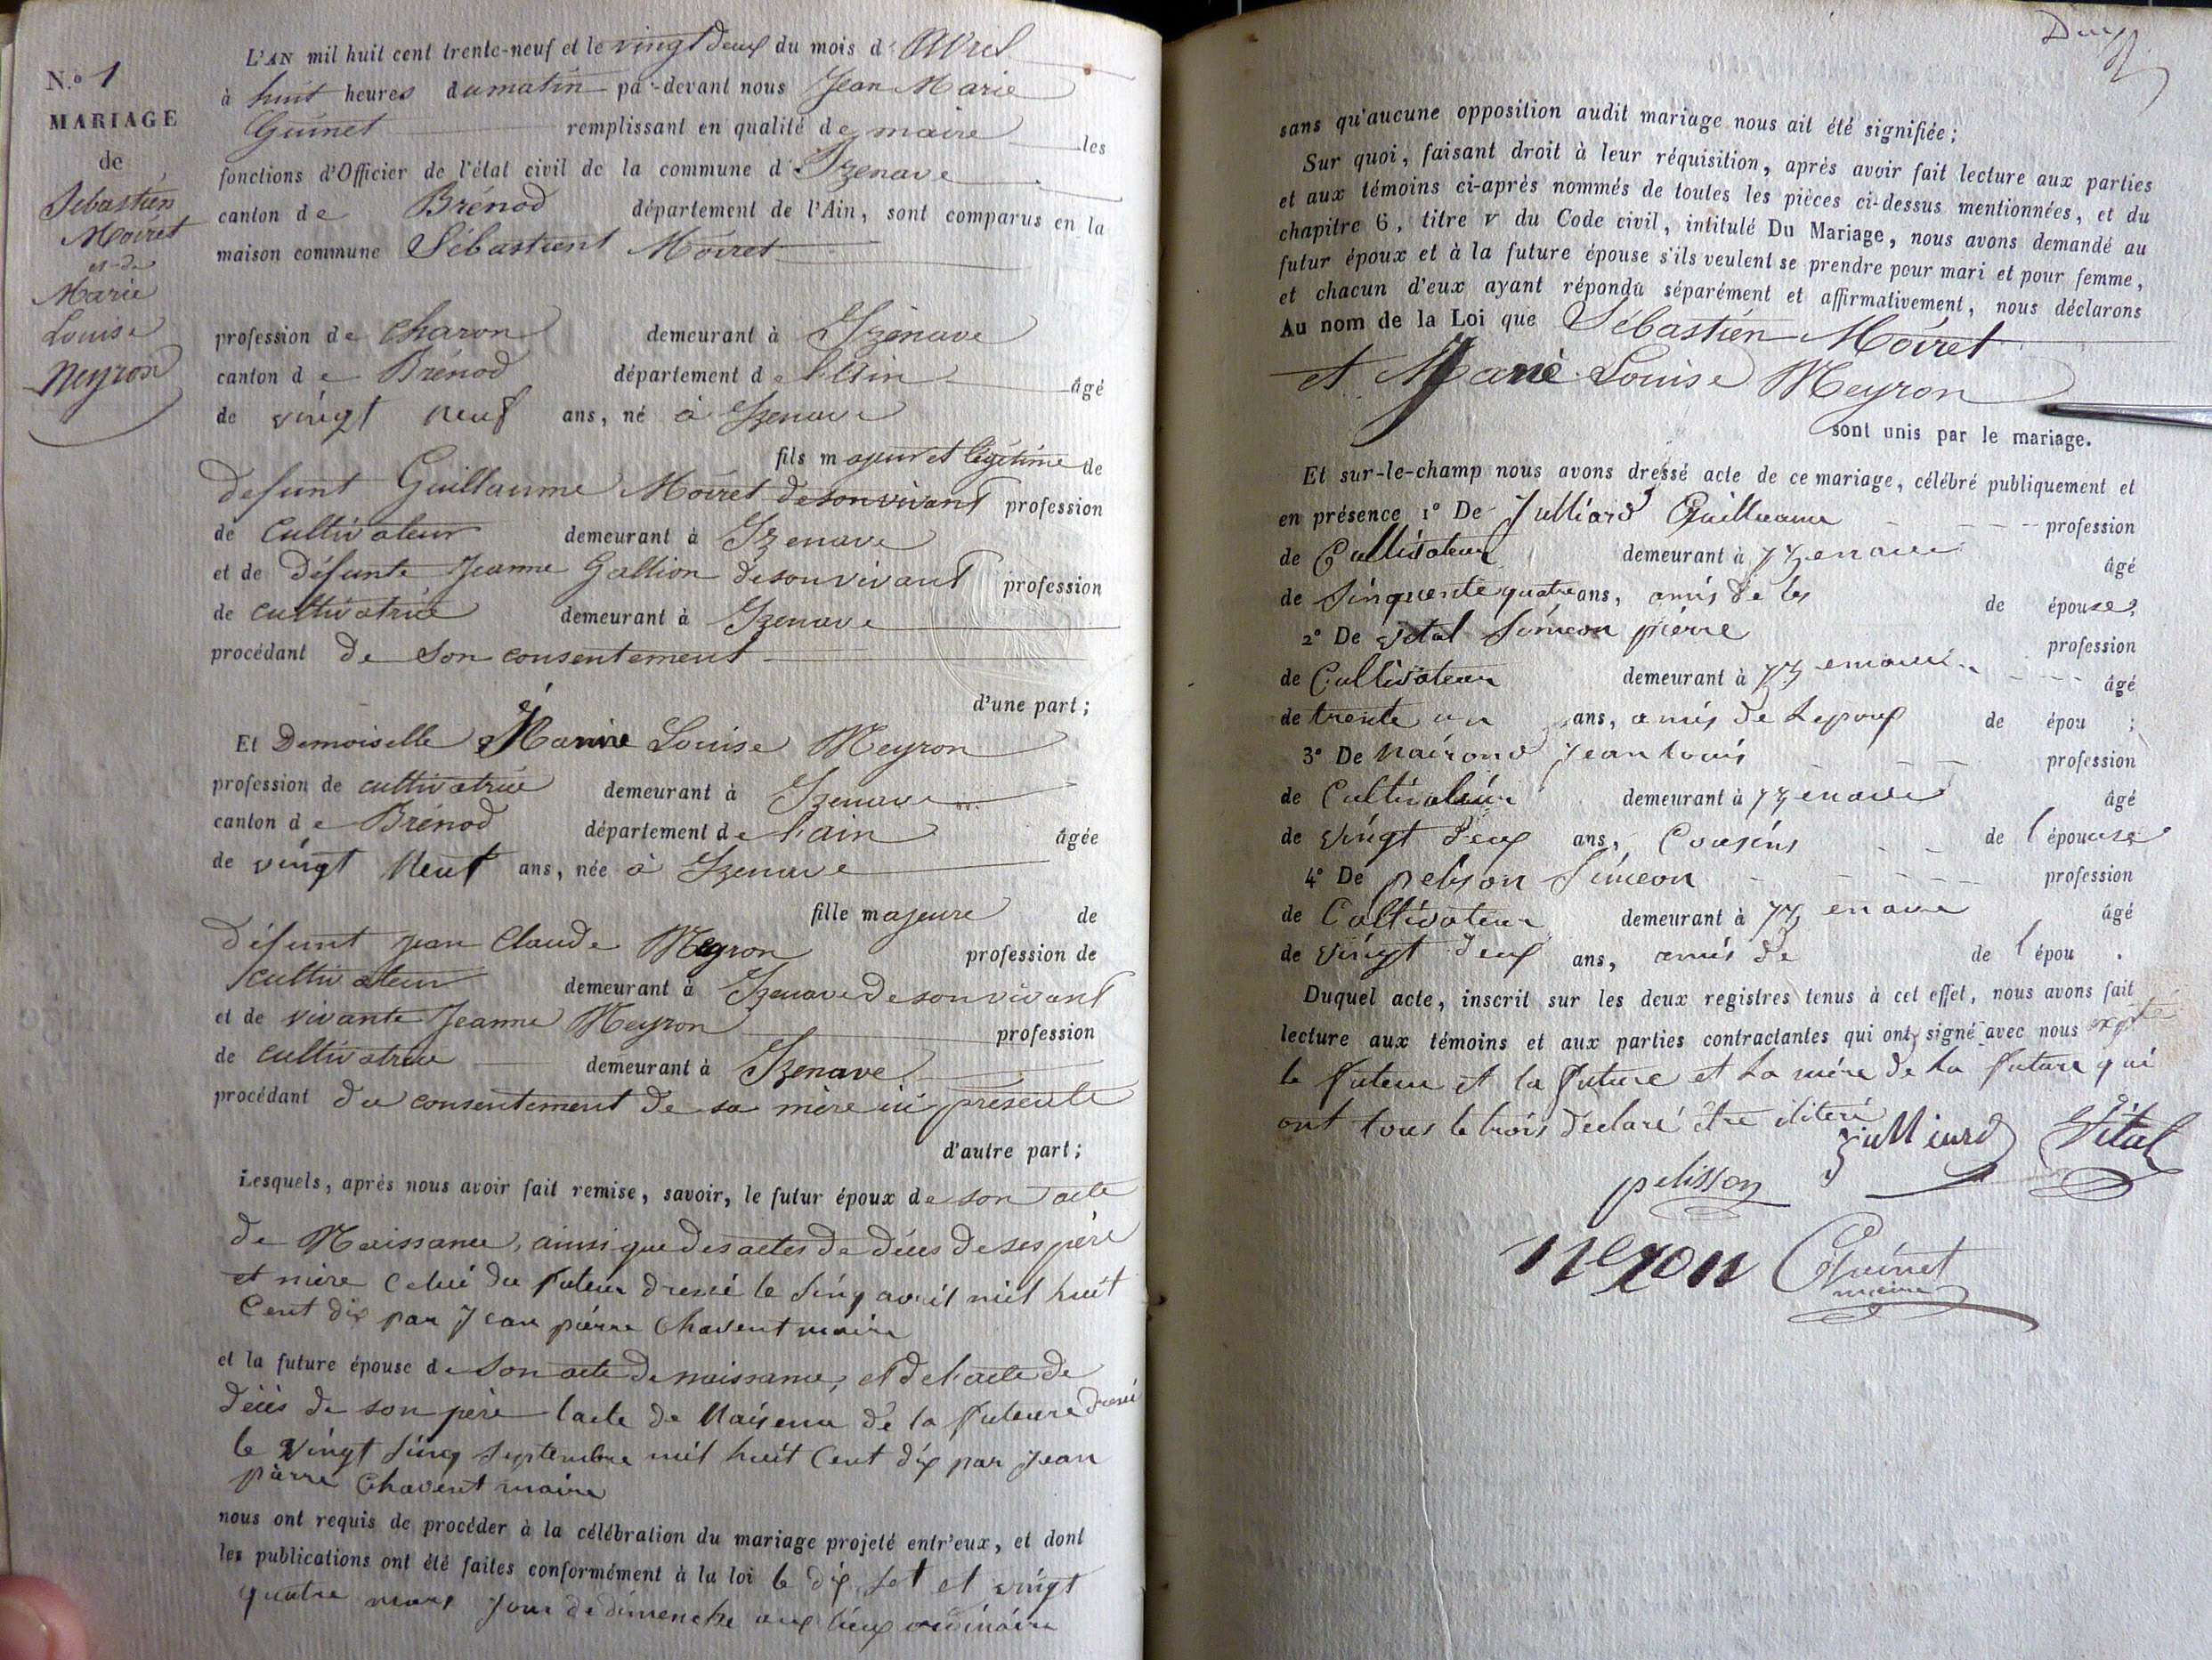 N.º 1
MARIAGE
de
Sébastien
Moiret
et de
Marie
Louise
Neyron
L'AN mil huit cent trente-neuf et le vingt deux du mois d' Avril
à huit heures du matin par-devant nous Jean Marie
Guinet remplissant en qualité de maire les
fonctions d'Officier de l'état civil de la commune d' Izenave
canton de Brénod département de l'Ain, sont comparus en la
maison commune Sébastient Moiret
profession de charon demeurant à Izenave
canton de Brénod département de l'Ain âgé
de vingt neuf ans, né à Izenave
fils majeur et légitime de
defunt Guillaume Moiret de son vivant profession
de cultivateur demeurant à Izenave
et de défunte Jeanne Gallion de son vivant profession
de cultivatrice demeurant à Izenave
procédant de son consentement
d'une part;
Et Demoiselle Marie Louise Neyron
profession de cultivatrice demeurant à Izenave
canton de Brénod département de l'ain âgée
de vingt neuf ans, née à Izenave
fille majeure de
défunt Jean Claude Neyron profession de
cultivateur demeurant à Izenave de son vivant
et de vivante Jeanne Neyron profession
de cultivatrice demeurant à Izenave
procédant du consentement de sa mère ici présente
d'autre part;
Lesquels, après nous avoir fait remise, savoir, le futur époux de son acte
de Naissance, ainsi que des actes de déces de ses père
et mère celui du futeur dressé le sinq avril mil huit
Cent dix par Jean pierre Chavent maire
et la future épouse de son acte de naissance, et de l'acte de
déces de son père lacte de Naisence de la futeure dressé
le vingt sinq septembre mil huit Cent dix par Jean
pierre Chavent maire
nous ont requis de procéder à la célébration du mariage projeté entr'eux, et dont
les publications ont été faites conformément à la loi le dix set et vingt
quatre mars jour de dimenche aux lieux ordinaire
Deux
sans qu'aucune opposition audit mariage nous ait été signifiée;
Sur quoi, faisant droit à leur réquisition, après avoir fait lecture aux parties
et aux témoins ci-après nommés de toutes les pièces ci-dessus mentionnées, et du
chapitre 6, titre v du Code civil, intitulé Du Mariage, nous avons demandé au
futur époux et à la future épouse s'ils veulent se prendre pour mari et pour femme,
et chacun d'eux ayant répondu séparément et affirmativement, nous déclarons
Au nom de la Loi que Sébastien Moiret
et Marie Louise Neyron
sont unis par le mariage.
Et sur-le-champ nous avons dressé acte de ce mariage, célébré publiquement et
en présence 1º De Julliard Guillaume profession
de Cultivateur demeurant à yzenave âgé
de sinquente quatre ans, amis de les de épouse;
2º De Vital Siméon pierre profession
de Cultivateur demeurant à yzenave âgé
de trente un ans, amis de Lepoux de épou ;
3º De Nairond Jean Louis profession
de Cultivateur demeurant à yzenave âgé
de vingt deux ans, Cousins de l'épouse
4º De pelisson Siméon profession
de Cultivateur demeurant à yzenave âgé
de vingt deux ans, amis de de l'épou .
Duquel acte, inscrit sur les deux registres tenus à cet effet, nous avons fait
lecture aux témoins et aux parties contractantes qui ont signé avec nous exepté
le futeur et la future et la mére de la future qui
ont tous le trois déclaré être iliteré
Julliard Vital
pelisson
neron Guinet
maire